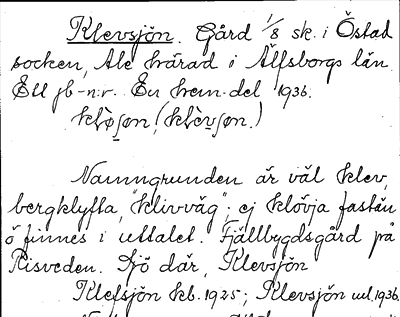 Klevsjön. Gård 1/8 sk. i Östad
socken, Ale härad i Älfsborgs län.
Ett jb-n:r. En hem.del 1936.
klø̀ʃon, (klèvʃon.)
Namngrunden är väl klev,
bergklyfta, "klivväg"; ej klövja fastän
ö finnes i uttalet. Fjällbygdsgård på
Risveden. Sjö där, Klevsjön
Klefsjön kb. 1925; Klevsjön uel. 1936